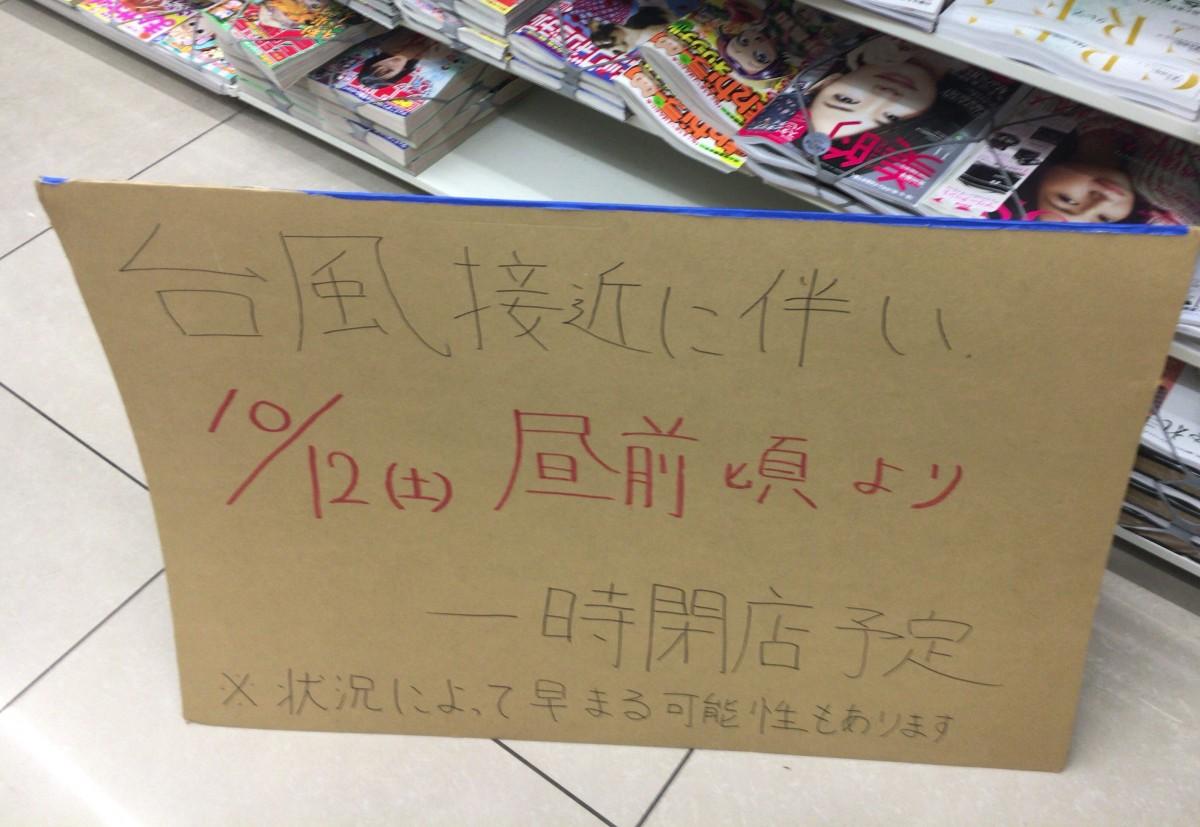 台風接近に伴い、
10/12(土) 昼前頃より
一時閉店予定
※状況によって早まる可能性もあります